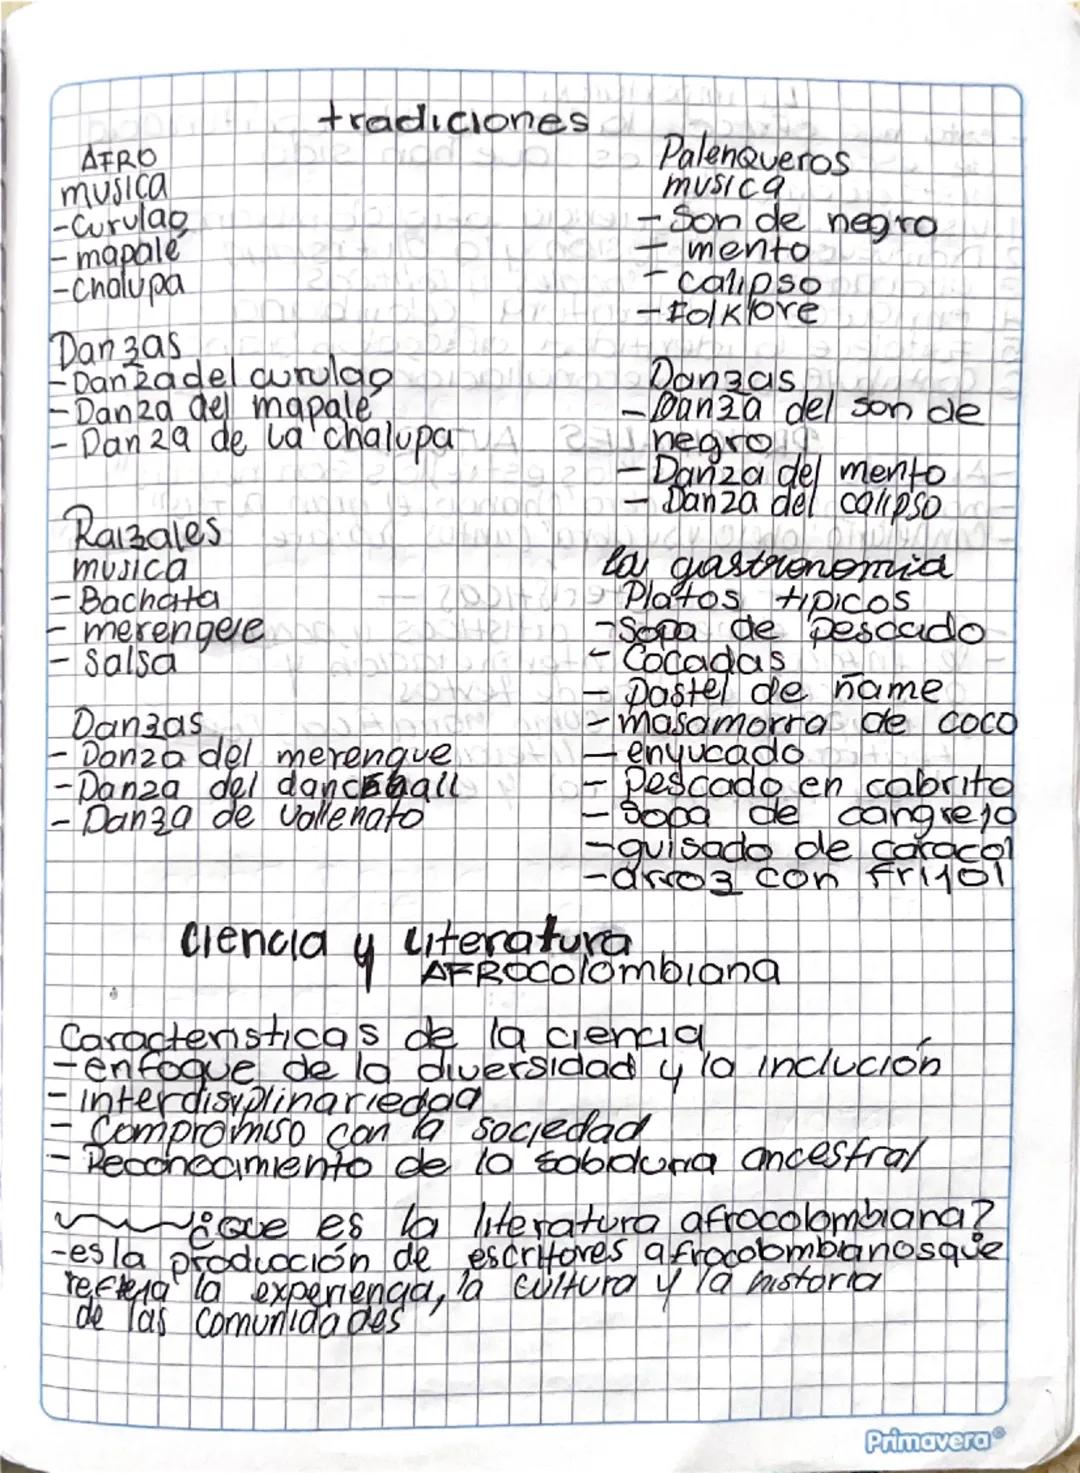 tradiciones
AFRO
musica
-Curulao
- mapalé
-chalupa
Danzas
-Danza del curulao
-Danza del mapalé
- Danza de la chalupa
Raizales
musica
- Bachata
- merengele
- Salsa
Danzas
- Danza del merengue
-Danza del danceball
- Danza de vallenato
Palenqueros
musica
- Son de negro
- mento
- calipso
- Folklore
Danzas
- Danza del son de
negro
- Danza del mento
- Danza del calipso
la gastronomia
Platos tipicos
-Sopa de pescado
- Cocadas
- pastel de ñame
- masamorra de coco
- enyucado
- Pescado en cabrito
- Sopa de cangrejo
-guisado de caracol
-arroz con frijol
Ciencia y Literatura
AFROcolombiana
Caracteristicas de la ciencia
-enfoque de la diversidad y la inclución
- interdisiplinariedad
- Compromiso con la sociedad
- Reconocimiento de la sabiduria ancestral
¿Que es la literatura afrocolombiana?
-es la producción de escritores afrocolombianos que
refleja la experiencia, la cultura y la historia
de las comunidades
Primavera®